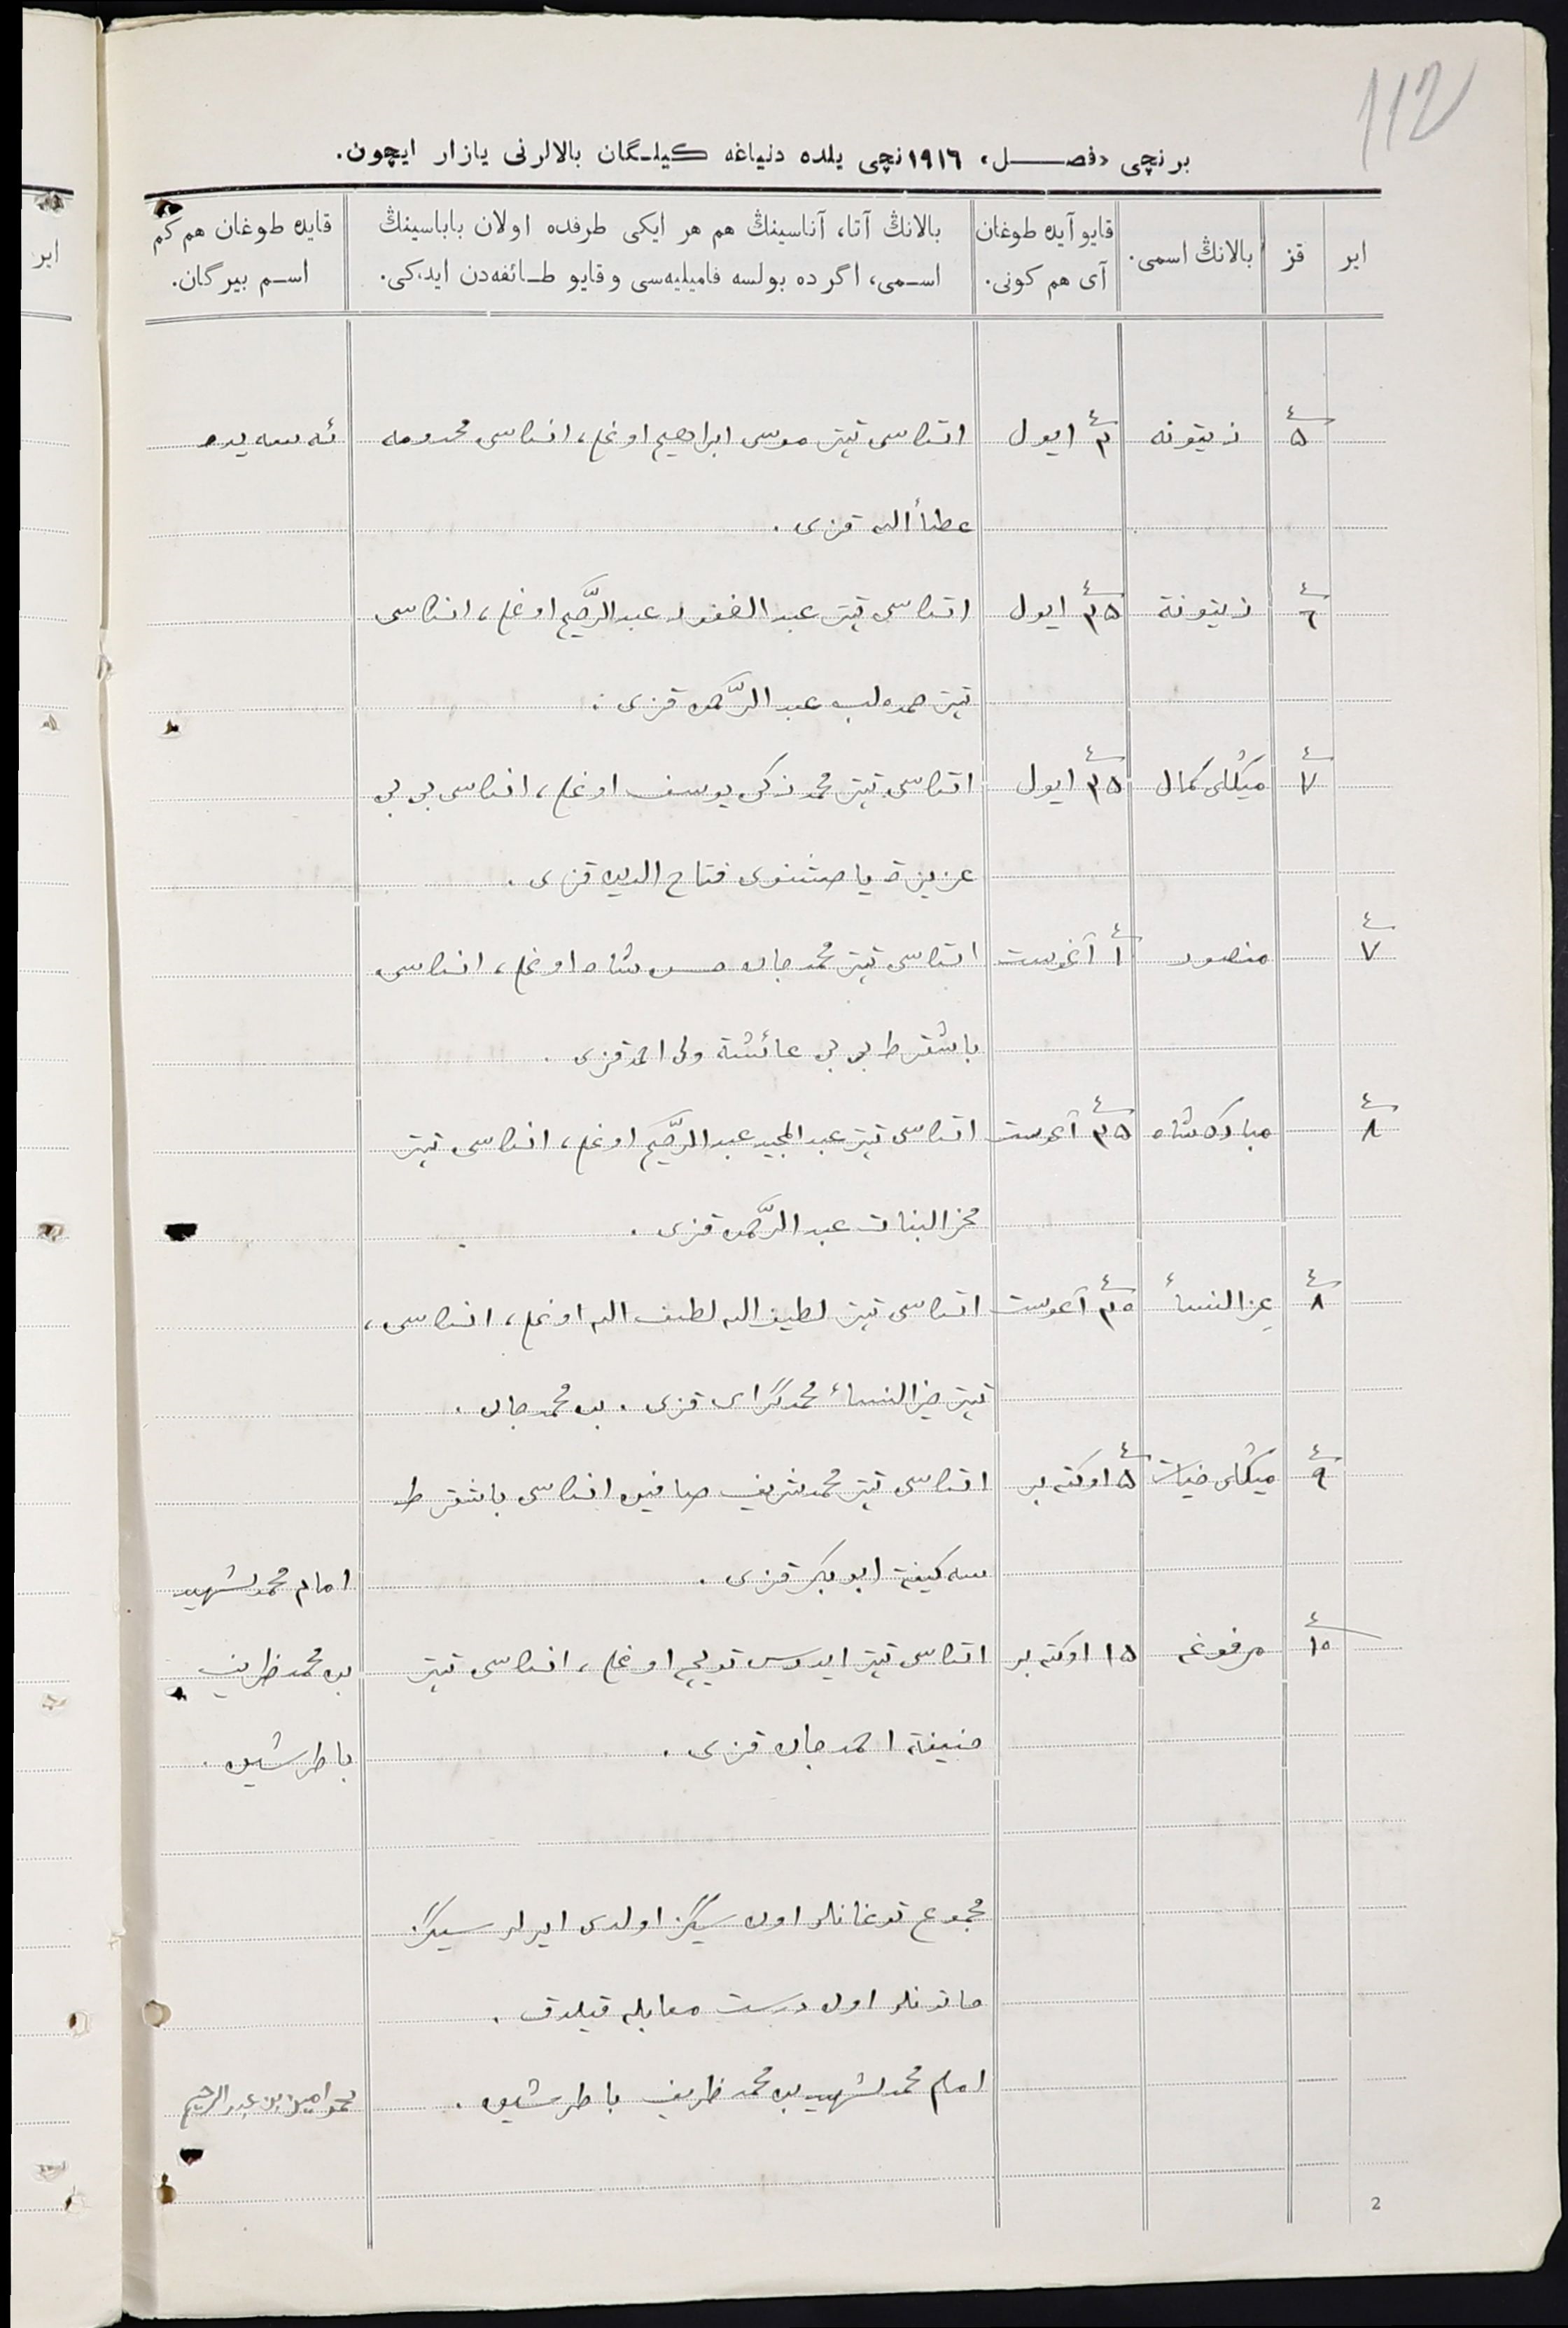 112
برنچی «فصل» ۱۹۱٦نچی یلده دنیاغه کیلـگان بالالرنی یازار ایچون.
ایر
قز
بالانڭ اسمی.
قایو آیده طوغان
آی هم کونی.
بالانڭ آتا، آناسینڭ هم هر ایکی طرفده اولان باباسینڭ
اسـمی، اگرده بولسه فامیلیه‌سی و قایو طـائفه‌دن ایدکی.
قایده طوغان هم کم
اسـم بیرگان.
ایر
۵ زیتونه ۳ ایول اتاسی تپتر موسی ابراهیم اوغلی، اناسی مخدومه
عطاٴالله قزی .
٦ زیتونة ۲۵ ایول اتاسی تپتر عبد الغفور عبد الرّحیم اوغلی، اناسی
تپتر عبد الرّحمن قزی .
۷ میڭلی کمال ۲۵ ایول اتاسی تپتر محمد زکی یوسف اوغلی، اناسی بی بی
عزیزة فتاح الدین قزی .
۷ منصور ۱ آغوست اتاسی تپتر محمد جان حسن شاه اوغلی، اناسی
باشقرط بی بی عائشة ولی احمد قزی .
۸ مبارکشاه ۲۵ آغوست اتاسی تپتر عبد المجید عبد الرّحیم اوغلی، اناسی تپتر
فخر البنات عبد الرّحمن قزی .
۸ عز النساٴ ۲۵ آغوست اتاسی تپتر لطیف الله اوغلی، اناسی،
تپتر النساٴ محمد گرای قزی . بن محمد جان .
۹ میڭلی ضیات ۵ اوکتەبر اتاسی تپتر محمد شریف صافین اناسی باشقرط
سه کینة ابو بکر قزی .
امام محمد شهید
۱۰ مرفوغه ۱۵ اوکتەبر اتاسی تپتر ایدرس اوغلی، اناسی تپتر
بن محمد ظریف
حنیفة احمد جان قزی .
باطرشین .
مجموع توغانلر اون سیگز اولدی ایرلر سیگز
خاتونلر اون درست مقابله قیلدق .
امام محمد شهید بن محمد ظریف باطرشین .
محمد امین بن عبد الرحیم
2